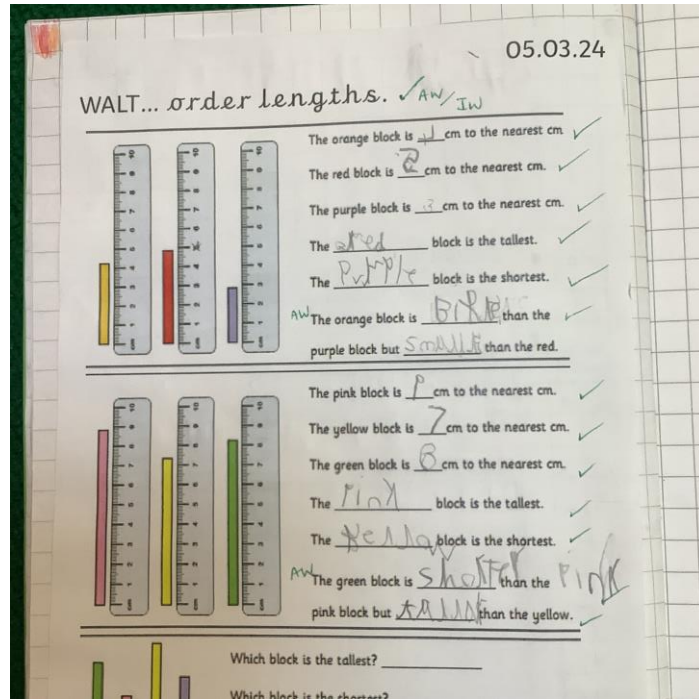 05.03.24
WALT... order lengths. ✓ AW/IW
The orange block is 4 cm to the nearest cm ✓
The red block is cm to the nearest cm. ✓
The purple block is 3 cm to the nearest cm. ✓
The red block is the tallest. ✓
The Purple block is the shortest. ✓
AW The orange block is than the ✓
purple block but than the red.
The pink block is cm to the nearest cm. ✓
The yellow block is 7 cm to the nearest cm. ✓
The green block is 8 cm to the nearest cm. ✓
The Pink block is the tallest. ✓
The yellow block is the shortest. ✓
AW The green block is than the Pink
pink block but than the yellow. ✓
Which block is the tallest?
Which block is the shortest?